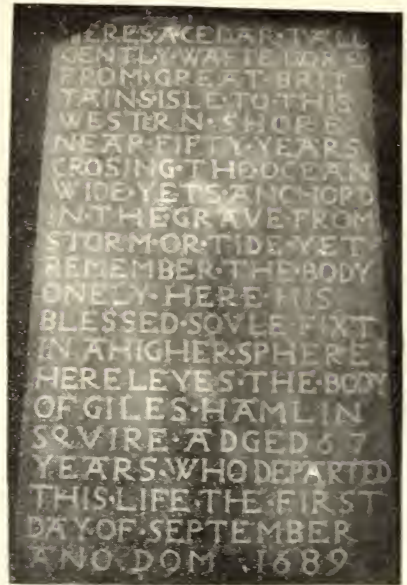 HERES·A·CEDAR·TALL
GENTLY·WAFTED·ORE
FROM·GREAT·BRIT
TAINS·ISLE·TO·THIS
WESTERN·SHORE
NEAR·FIFTY·YEARS
CROSING·THE·OCEAN
WIDE·YETS·ANCHORD
IN·THE·GRAVE·FROM
STORM·OR·TIDE·YET
REMEMBER·THE·BODY
ONELY·HERE·HIS
BLESSED·SOVLE·FIXT
IN·A·HIGHER·SPHERE
HERE·LEYES·THE·BODY
OF·GILES·HAMLIN
SQVIRE·ADGED 67
YEARS·WHO DEPARTED
THIS·LIFE·THE·FIRST
DAY·OF·SEPTEMBER
ANO·DOM·1689